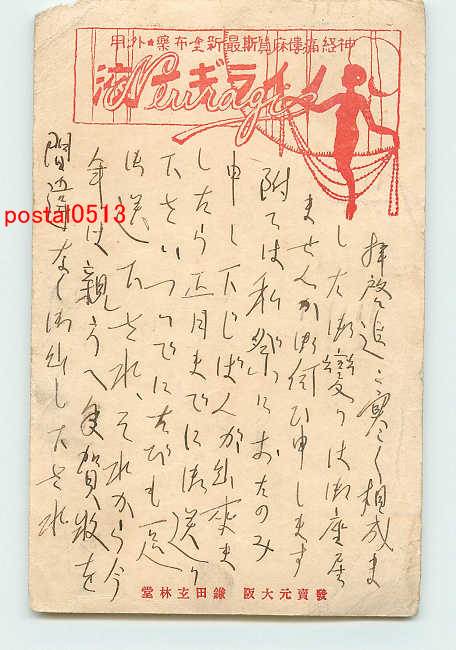 神経痛僂麻質斯最新塗布薬・外用
ノイラギン液
Neuragin
拝啓追々寒く相成ま
した御変りは御座居
ませんか御伺ひ申します
附ては私祭りにおたのみ
申し下じばんが出来ま
したら正月までに御送り
下さいついでに足たびも一足
御送下され、それから今
年は親方へ年賀状を
間違なく御出し下され
發賣元大阪 鎌田玄林堂
postal0513